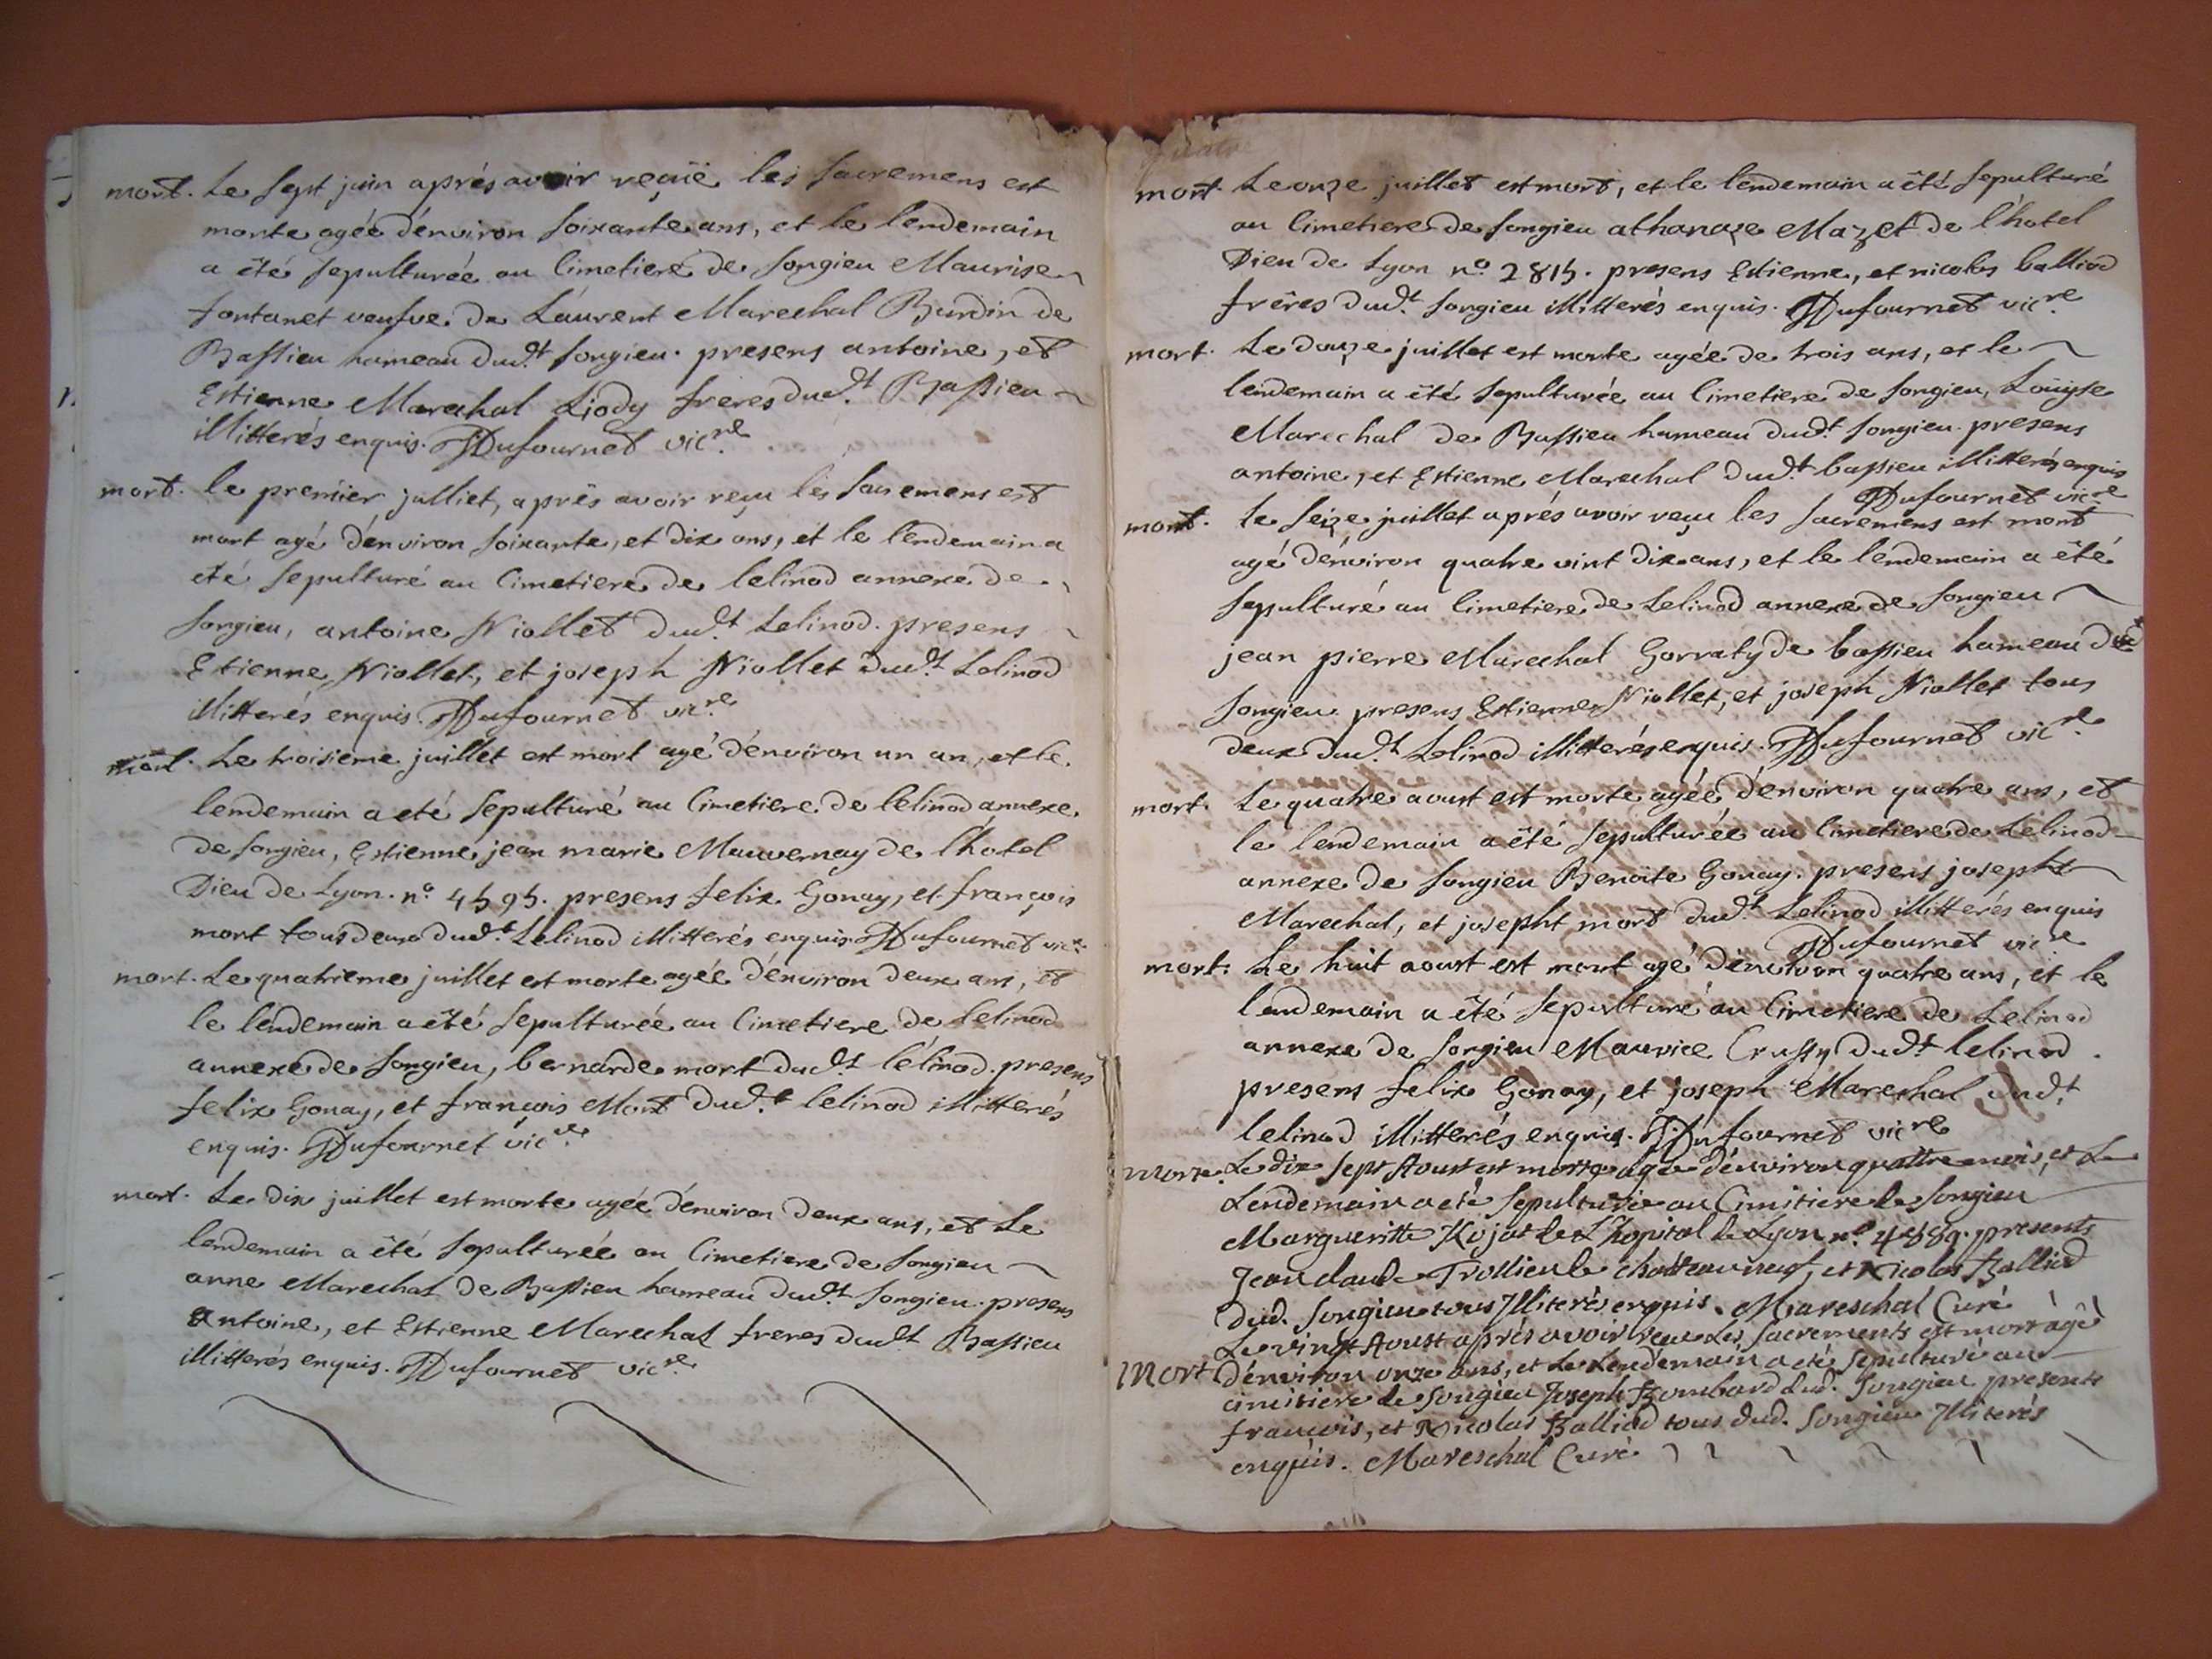 mort. Le sept juin aprés avoir reçüe les sacremens est
morte agée dénviron soixante ans, et le lendemain
a été sepulturée au Cimetiere de Songieu Maurise
fontanet veufve de Láurent Marechal Burdin de
Bassieu hameau dud.t songieu. presens antoine, et
Estienne Marechal Liody freres dud.t Bassieu
illitterés enquis. JDufournet vic.re
mort. le premier julliet, aprés avoir reçu les sacremens est
mort agé dénviron soixante, et dix ans, et le lendemain a
eté sepulturé au Cimetiere de lelinod annexe de
songieu, antoine Niollet dud.t Lelinod. presens
Etienne Niollet, et joseph Niollet dud.t Lelinod
illitterés enquis. JDufournet vic.re
mort. Le troisieme juillet est mort agé dénviron un an, et le
lendemain a eté sepulturé au Cimetiere de lelinod annexe
de songieu, Estienne jean marie Mauvernay de l'hotel
Dieu de Lyon. n.o 4595. presens felix Gonay, et françois
mort tous deux dud.t Lélinod illitterés enquis JDufournet vic.re
mort. Le quatrieme juillet est morte agée dénviron deux ans, et
le lendemain a été sepulturée au Cimetiere de lelinod
annexe de songieu, bernarde mort dud.t lélinod. presens
felix Gonay, et françois Mort dud.t lelinod illitterés
enquis. JDufournet vic.re
mort. Le dix juillet est morte agée dénviron deux ans, et Le
lendemain a été sepulturée au Cimetiere de songieu
anne Marechal de Bassieu hameau dud.t songieu. presens
Antoine, et Estienne Marechal freres dud.t Bassieu
illitterés enquis. JDufournet vic.re
mort. Le onze juillet est mort, et le lendemain a été sepulturé
au Cimetiere de songieu athanaze Mazet de l'hotel
Dieu de Lyon n.o 2815. presens Estienne, et nicolas balliod
fréres dud.t songieu illitterés enquis. JDufournet vic.re
mort. Le douze juillet est morte agée de trois ans, et le
lendemain a été sepulturée au Cimetiere de songieu, Loüyse
Marechal de Bassieu hameau dud.t songieu. presens
antoine, et Estienne Marechal dud.t bassieu illitterés enquis
JDufournet vic.re
mort. Le seize juillet aprés avoir reçu les sacremens est mort
agé dénviron quatre vint dix ans, et le lendemain a été
sepulturé au Cimetiere de Lelinod annexe de songieu
jean pierre Marechal Gorraty de bassieu hameau dud.t
songieu presens Estienne Niollet, et joseph Niollet tous
deux dud.t Lelinod illitterés enquis. JDufournet vic.re
mort. Le quatre aoust est morte agée dénviron quatre ans, et
le lendemain a été sepulturée au Cimetiere de Lélinod
annexe de songieu Benoite Gonay. presens joseph
Marechal, et josepht mort dud.t Lelinod illitterés enquis
JDufournet vic.re
mort. Le huit aoust est mort agé dénviron quatre ans, et le
lendemain a été sepulturé au Cimetiere de Lelinod
annexe de songieu Maurice Crussy dud.t lelinod.
presens felix Gonay, et joseph Marechal dud.t
lelinod illitterés enquis. JDufournet vic.re
morte. Le dix sept Aoust est morte agée dénviron quattre mois, et Le
Lendemain a eté sepulturée au Cimitiere de songieu
Margueritte Kojat de L'hopital de Lyon n.o 4889. presents
Jean claude Trollieu de châteauneuf, et Nicolas Balliod
dud. Songieu tous Illiterés enquis. Mareschal Curé
Le vingt Aoust aprés avoir reçu Les sacrements est mort âgé
Mort d'enviton onze ans, et Le Lendemain a eté sepulturé au
cimitiere de Songieu Joseph Bombard dud. Songieu presents
françois, et Nicolas Balliod tous dud. Songieu Illiterés
enquis. Mareschal Curé